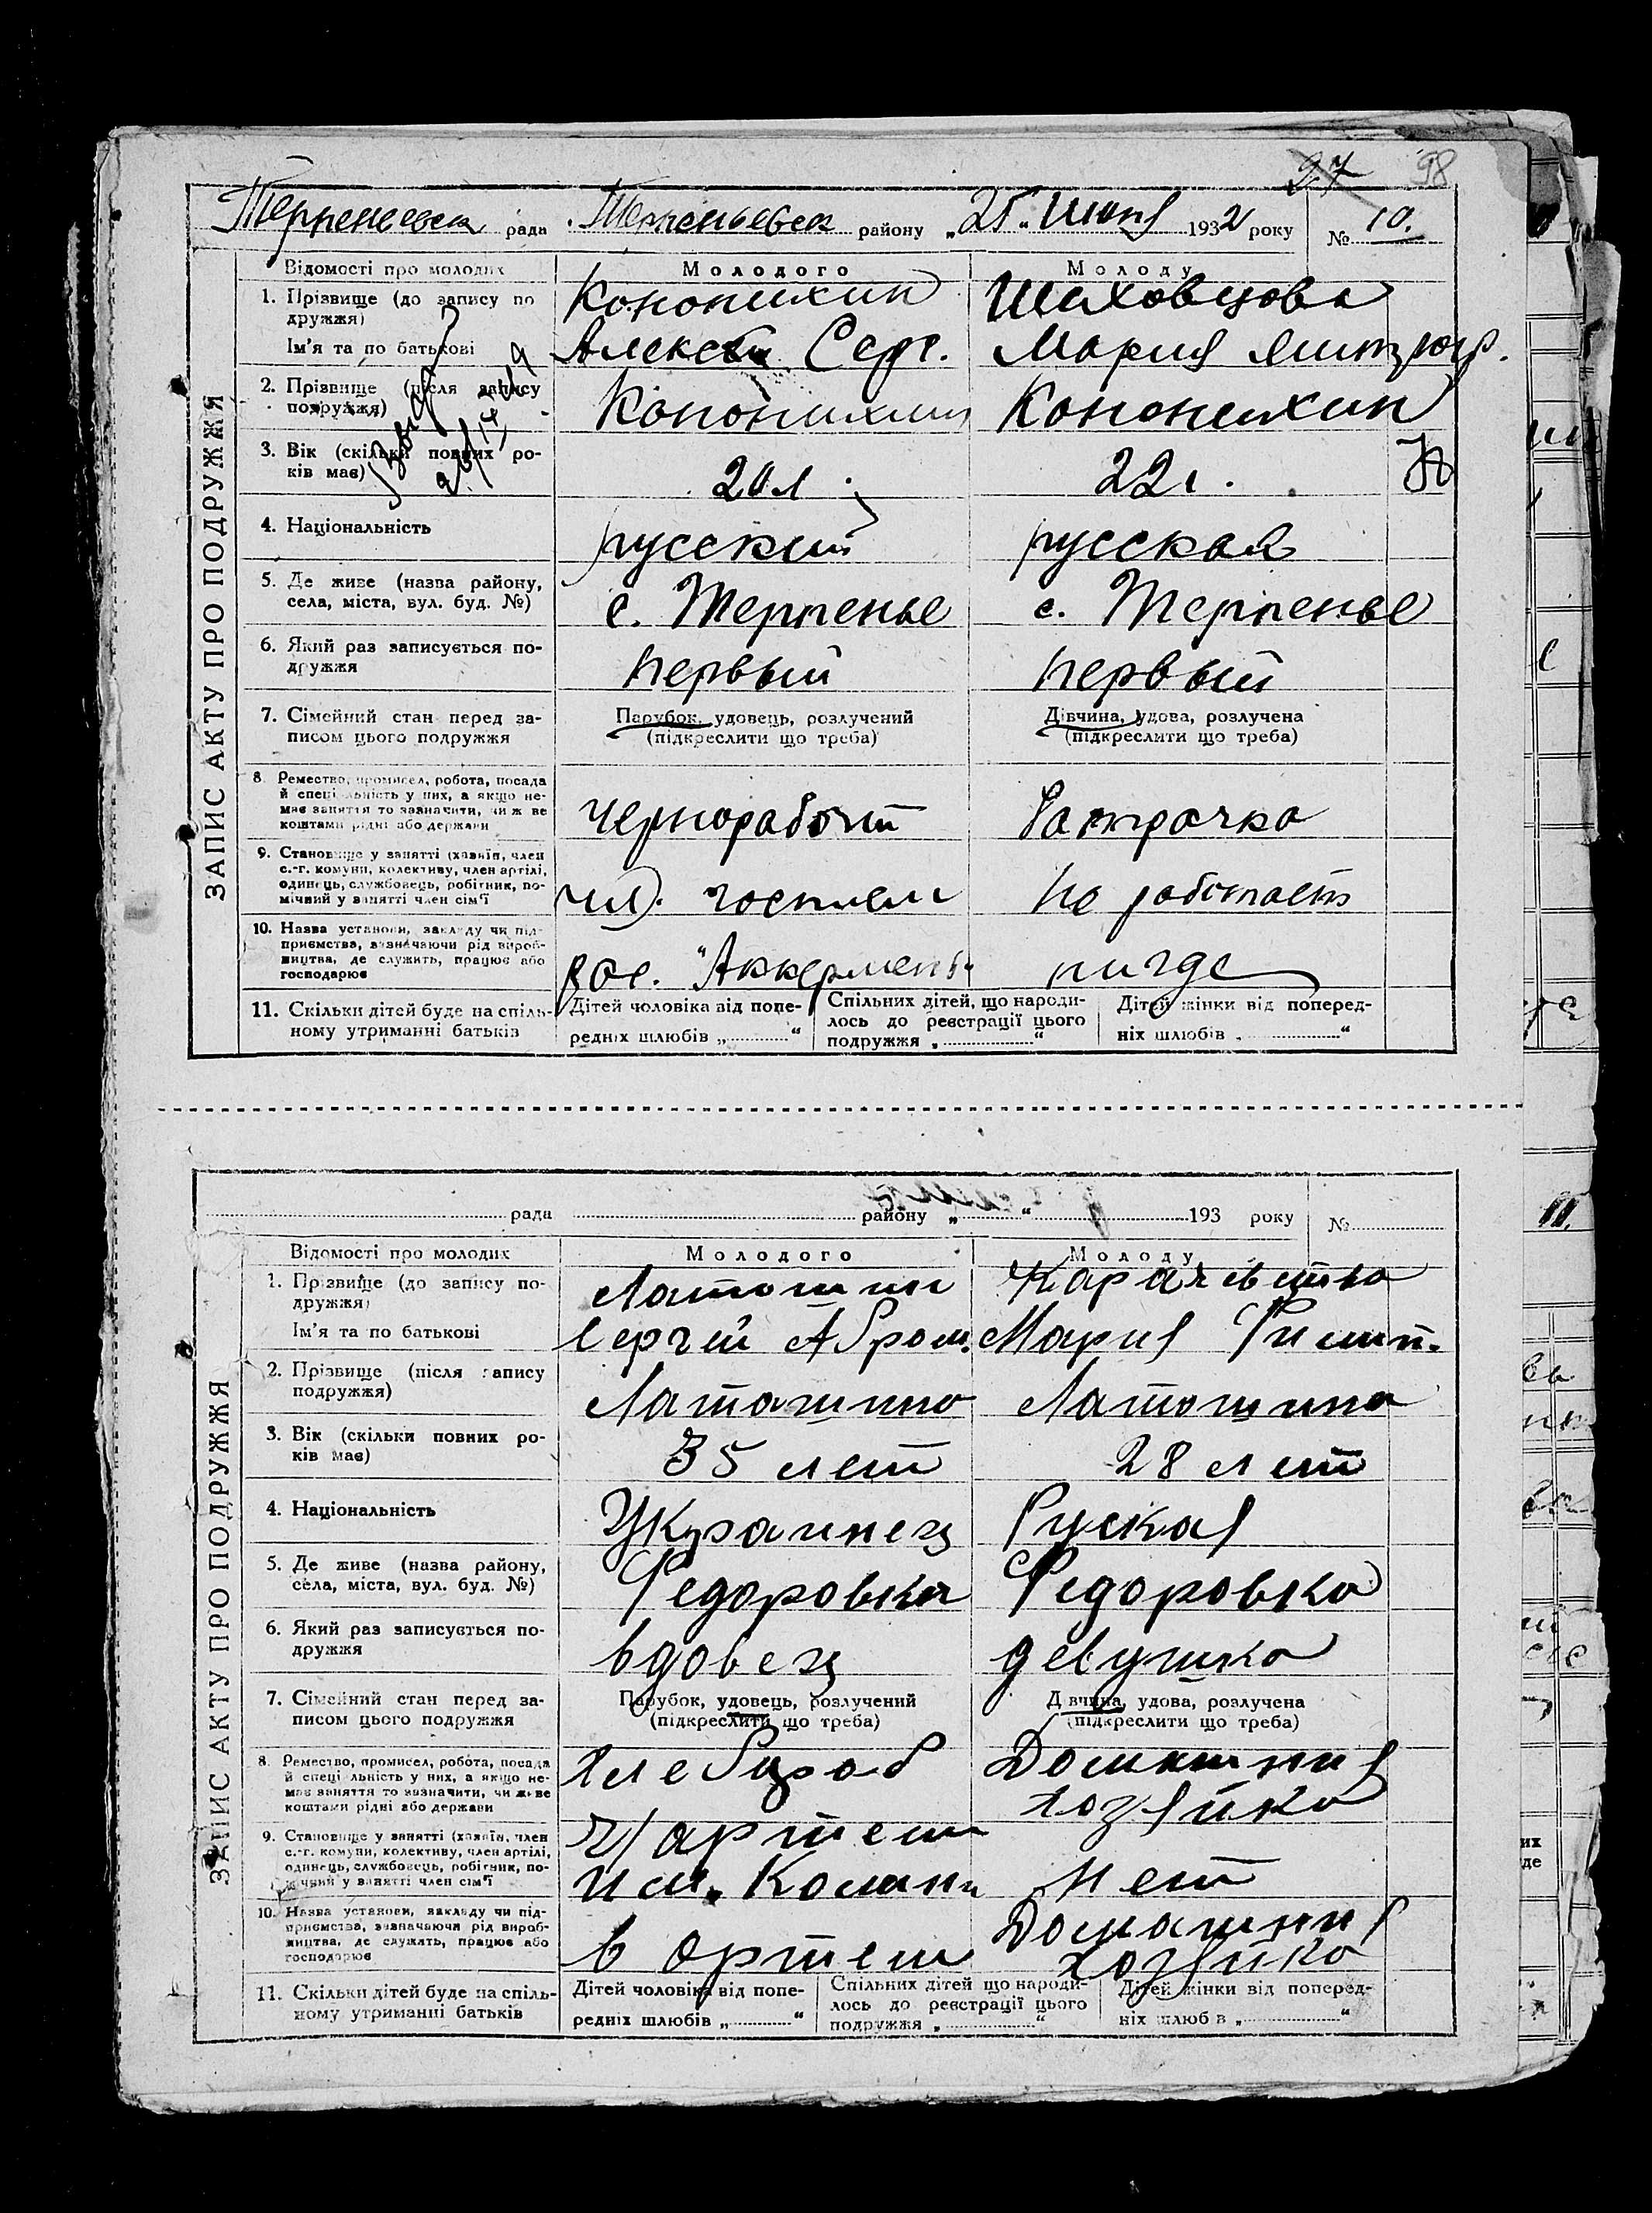 27 98
Терпеньевск рада Терпеньевск району „25“ июня 1932 року № 10.
ЗАПИС АКТУ ПРО ПОДРУЖЖЯ
Відомості про молодих Молодого Молоду
1. Прізвище (до запису по Кононихин Шаховцова
дружжя)
Ім'я та по батькові Алексей Серг. Мария
2. Прізвище (після запису
подружжя) Кононихин Кононихин
3. Вік (скільки повних ро-
ків має) 20 л. 22 г.
4. Національність русский русская
5. Де живе (назва району,
села, міста, вул. буд. №) с. Терпенье с. Терпенье
6. Який раз записується по-
дружжя первый первый
7. Сімейний стан перед за- Парубок, удовець, розлучений Дівчина, удова, розлучена
писом цього подружжя (підкреслити що треба) (підкреслити що треба)
8. Ремество, промисел, робота, посада
й спеціяльність у них, а якщо не-
має заняття то зазначити, чи ж ве
коштами рідні або держави чернорабочий батрачка
9. Становище у занятті (хазяїн, член
с.-г. комуни, колективу, член артілі,
одинець, службовець, робітник, по-
мічний у занятті член сім'ї не работает
10. Назва установи, закладу чи під-
приємства, зазначаючи рід вироб-
ництва, де служить, працює або
господарює "Аккермень" нигде
11. Скільки дітей буде на спіль- Дітей чоловіка від попе- Спільних дітей, що народи- Дітей жінки від поперед-
ному утриманні батьків редніх шлюбів „ “ лось до реєстрації цього ніх шлюбів „ “
подружжя „ “
рада району „ “ 193 року №
ЗАПИС АКТУ ПРО ПОДРУЖЖЯ
Відомості про молодих Молодого Молоду
1. Прізвище (до запису по- Латошин
дружжя)
Ім'я та по батькові Сергей Абрам. Мария Филип.
2. Прізвище (після запису
подружжя) Латашино Латошина
3. Вік (скільки повних ро-
ків має) 35 лет 28 лет
4. Національність Украинец Руская
5. Де живе (назва району,
села, міста, вул. буд. №) Федоровка Федоровка
6. Який раз записується по-
дружжя вдовец девушка
7. Сімейний стан перед за- Парубок, удовець, розлучений Дівчина, удова, розлучена
писом цього подружжя (підкреслити що треба) (підкреслити що треба)
8. Ремество, промисел, робота, посада хлебороб Домашния
й спеціяльність у них, а якщо не-
має заняття то зазначити, чи живе
коштами рідні або держави хозяйка
9. Становище у занятті (хазяїн, член ч/артели
с.-г. комуни, колективу, член артілі,
одинець, службовець, робітник, по-
мічний у занятті член сім'ї им. нет
10. Назва установи, закладу чи під- Домашния
приємства, зазначаючи рід вироб-
ництва, де служить, працює або
господарює в ортели хозяйка
11. Скільки дітей буде на спіль- Дітей чоловіка від попе- Спільних дітей що народи- Дітей жінки від поперед-
ному утриманні батьків редніх шлюбів „ “ лось до реєстрації цього ніх шлюб в „ “
подружжя „ “